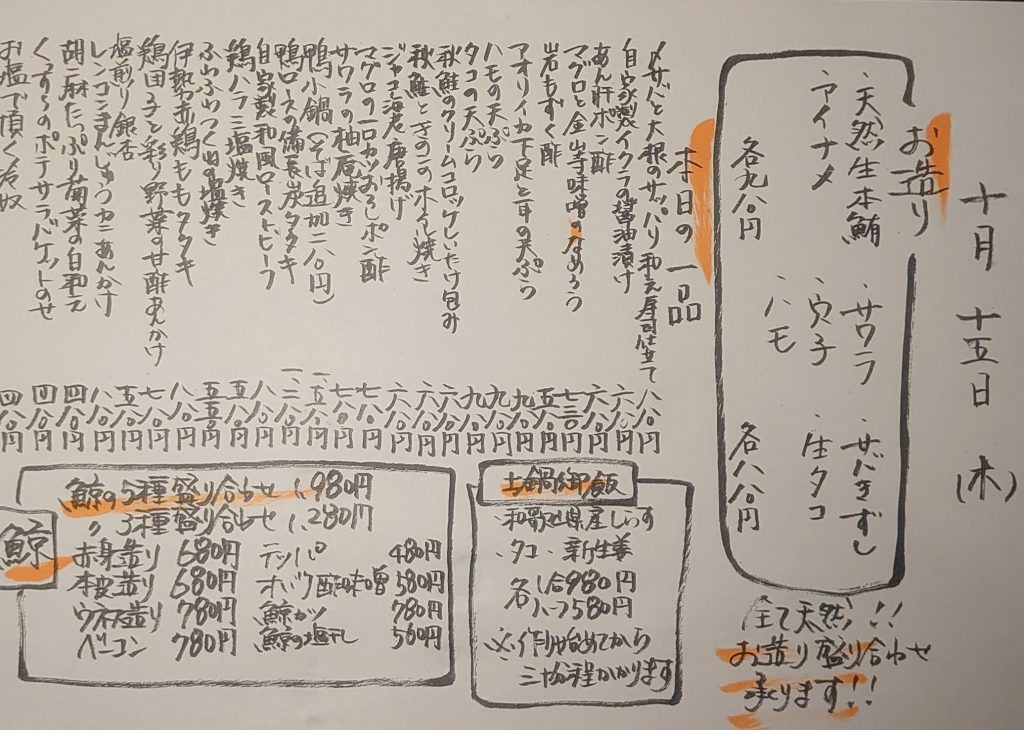 十月十五日(木)
お造り
・天然生本鮪
・アイナメ
各九八〇円
・サワラ
・穴子
・ハモ
・サバきずし
・生タコ
各八八〇円
全て天然!!
お造り盛り合わせ
承ります!!
本日の一品
〆サバと大根のサッパリ和え寿司仕立て 八八〇円
自家製イクラの醤油漬け 六八〇円
あん肝ポン酢 六八〇円
マグロと金山寺味噌のなめろう 七三〇円
岩もずく酢 五八〇円
アオリイカ下足と茸の天ぷら 九八〇円
ハモの天ぷら 九八〇円
タコの天ぷら 九八〇円
秋鮭のクリームコロッケしいたけ包み 六八〇円
秋鮭ときのこのホイル焼き 六八〇円
ジャコ海老唐揚げ 六八〇円
マグロの一口カツおろしポン酢 七八〇円
サワラの柚庵焼き 七八〇円
鴨小鍋(そば追加二八〇円) 一、五八〇円
鴨ロースの備長炭タタキ 一、二八〇円
自家製和風ローストビーフ 八八〇円
鶏ハラミ塩焼き 五八〇円
ふわふわつくねの塩焼き 五五〇円
伊勢赤鶏ももタタキ 八八〇円
鶏団子と彩り野菜の甘酢あんかけ 七八〇円
塩煎り銀杏 五八〇円
レンコンまんじゅうカニあんかけ 八八〇円
胡麻たっぷり菊菜の白和え 四八〇円
くずし のポテサラバケットのせ 四八〇円
お塩で頂く冷奴 四八〇円
土鍋御飯
・和歌山県産しらす
・タコ ・新生姜
各 一合980円
ハーフ580円
※作り始めてから
三十分程かかります
鯨
鯨の5種盛り合わせ 1,980円
〃 3種盛り合わせ 1,280円
赤身造り 680円
本皮造り 680円
ウネ造り 780円
ベーコン 780円
テッパ 480円
オバケ酢味噌 580円
鯨カツ 780円
鯨の塩 560円